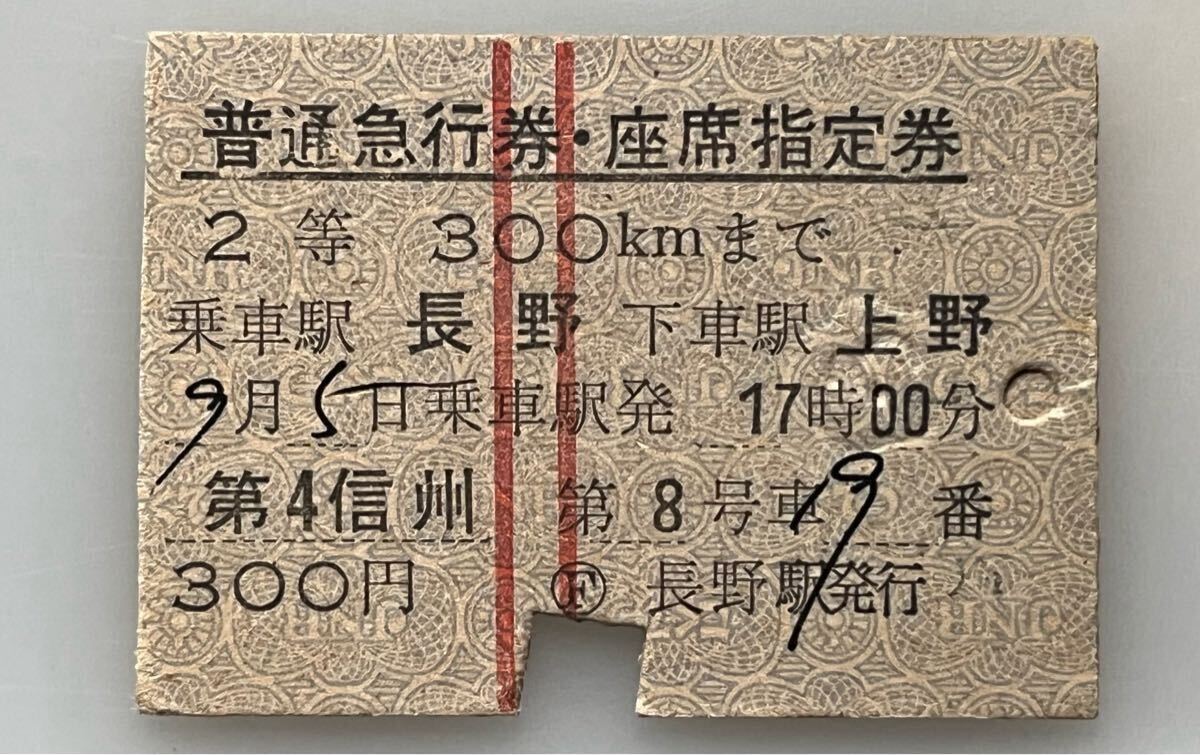 普通急行券・座席指定券
2等 300kmまで
乗車駅 長野 下車駅 上野
9月5日乗車駅発 17時00分
第4信州 第8号車 19番
300円 Ⓕ 長野駅発行